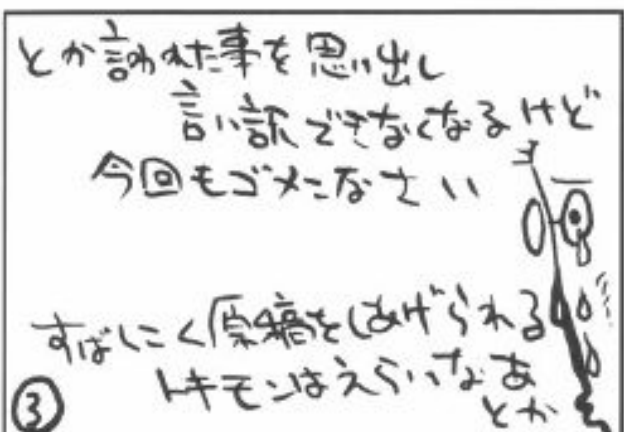 とか言われた事を思い出し
言い訳できなくなるけど
今回もゴメンなさい
すばしこく原稿をしあげられる
トキモンはえらいなあ
とか
③